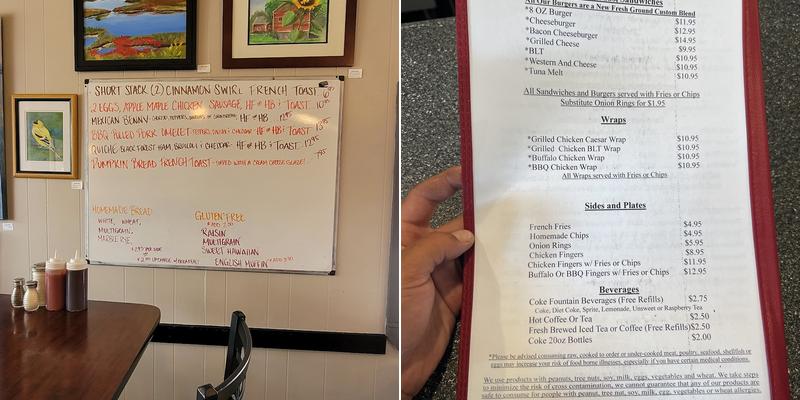 SHORT STACK (2) CINNAMON SWIRL FRENCH TOAST
2 EGGS, APPLE MAPLE CHICKEN SAUSAGE, HF OR HB & TOAST
MEXICAN BENNY HF OR HB
BBQ PULLED PORK OMELET HF OR HB & TOAST
QUICHE BLACK FOREST HAM, BROCCOLI & CHEDDAR HF OR HB & TOAST
PUMPKIN BREAD FRENCH TOAST SERVED WITH A CREAM CHEESE GLAZE!
HOMEMADE BREAD
WHITE, WHEAT,
MULTIGRAIN,
MARBLE RYE,
GLUTEN FREE
RAISIN
MULTIGRAIN
SWEET HAWAIIAN
ENGLISH MUFFIN
All Our Burgers are a New Fresh Ground Custom Blend
*8 OZ Burger $11.95
*Cheeseburger $12.95
*Bacon Cheeseburger $14.95
*Grilled Cheese $9.95
*BLT $10.95
*Western And Cheese $10.95
*Tuna Melt $10.95
All Sandwiches and Burgers served with Fries or Chips
Substitute Onion Rings for $1.95
Wraps
*Grilled Chicken Caesar Wrap $10.95
*Grilled Chicken BLT Wrap $10.95
*Buffalo Chicken Wrap $10.95
*BBQ Chicken Wrap $10.95
All Wraps served with Fries or Chips
Sides and Plates
French Fries $4.95
Homemade Chips $4.95
Onion Rings $5.95
Chicken Fingers $8.95
Chicken Fingers w/ Fries or Chips $11.95
Buffalo Or BBQ Fingers w/ Fries or Chips $12.95
Beverages
Coke Fountain Beverages (Free Refills) $2.75
Coke, Diet Coke, Sprite, Lemonade, Unsweet or Raspberry Tea
Hot Coffee Or Tea $2.50
Fresh Brewed Iced Tea or Coffee (Free Refills)$2.50
Coke 20oz Bottles $2.00
*Please be advised consuming raw, cooked to order or under-cooked meat, poultry, seafood, shellfish or
eggs may increase your risk of food borne illness, especially if you have certain medical conditions.
We use products with peanuts, tree nuts, soy, milk, eggs, vegetables and wheat. We take steps
to minimize the risk of cross contamination, we cannot guarantee that any of our products are
safe to consume for people with peanut, tree nut, soy, milk, egg, vegetables or wheat allergies.